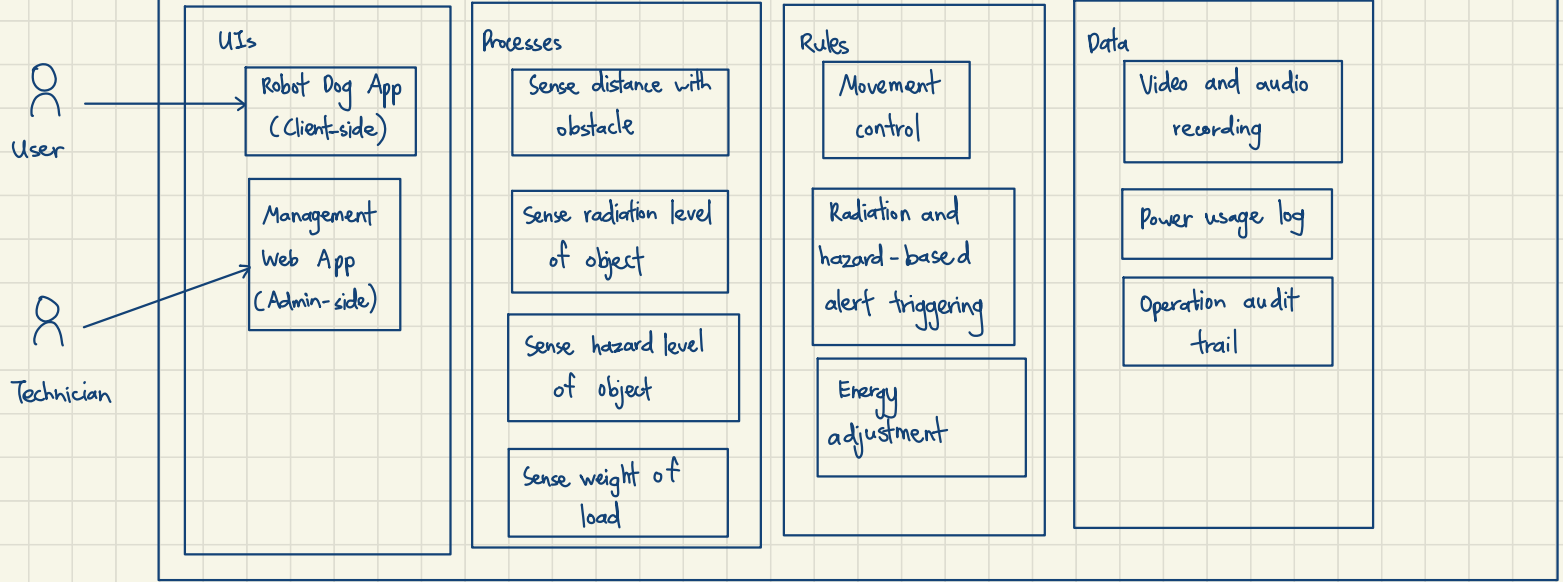 User
Technician
UIs
Robot Dog App
(Client-side)
Management
Web App
(Admin-side)
Processes
Sense distance with
obstacle
Sense radiation level
of object
Sense hazard level
of object
Sense weight of
load
Rules
Movement
control
Radiation and
hazard-based
alert triggering
Energy
adjustment
Data
Video and audio
recording
Power usage log
Operation audit
trail